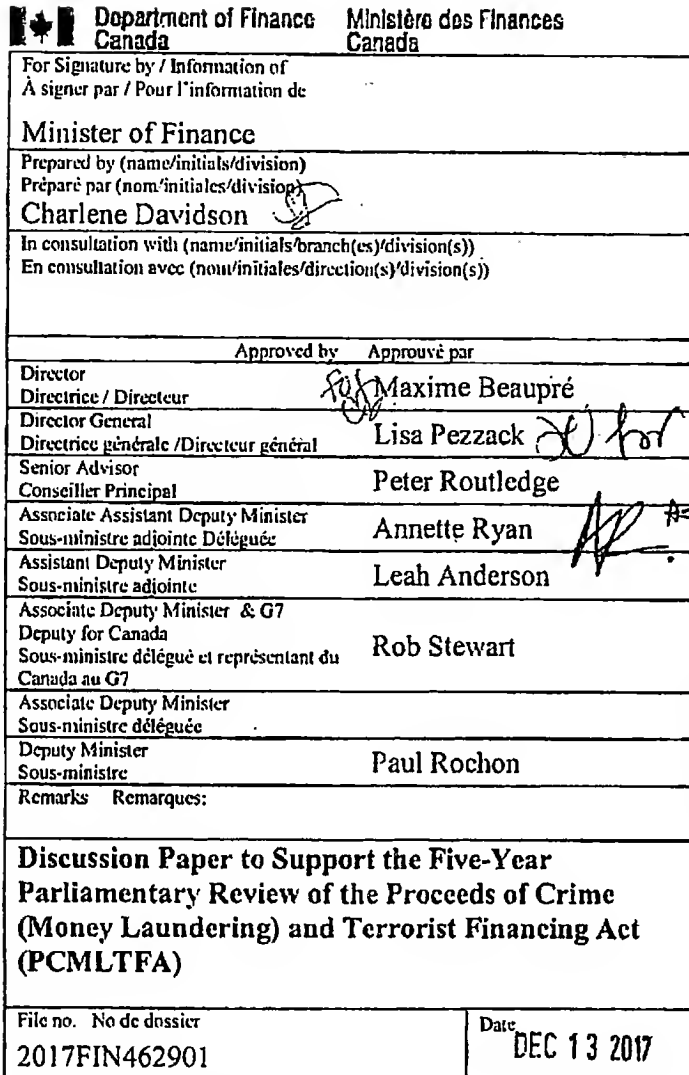 Department of Finance Ministère des Finances
Canada Canada
For Signature by / Information of
À signer par / Pour l'information de
Minister of Finance
Prepared by (name/initials/division)
Préparé par (nom/initiales/division)
Charlene Davidson
In consultation with (name/initials/branch(es)/division(s))
En consultation avec (nom/initiales/direction(s)/division(s))
Approved by Approuvé par
Director
Directrice / Directeur
for Maxime Beaupré
Director General
Directrice générale /Directeur général
Lisa Pezzack for
Senior Advisor
Conseiller Principal
Peter Routledge
Associate Assistant Deputy Minister
Sous-ministre adjointe Déléguée
Annette Ryan
Assistant Deputy Minister
Sous-ministre adjointe
Leah Anderson
Associate Deputy Minister & G7
Deputy for Canada
Sous-ministre délégué et représentant du
Canada au G7
Rob Stewart
Associate Deputy Minister
Sous-ministre déléguée
Deputy Minister
Sous-ministre
Paul Rochon
Remarks Remarques:
Discussion Paper to Support the Five-Year
Parliamentary Review of the Proceeds of Crime
(Money Laundering) and Terrorist Financing Act
(PCMLTFA)
File no. No de dossier
2017FIN462901
Date
DEC 13 2017